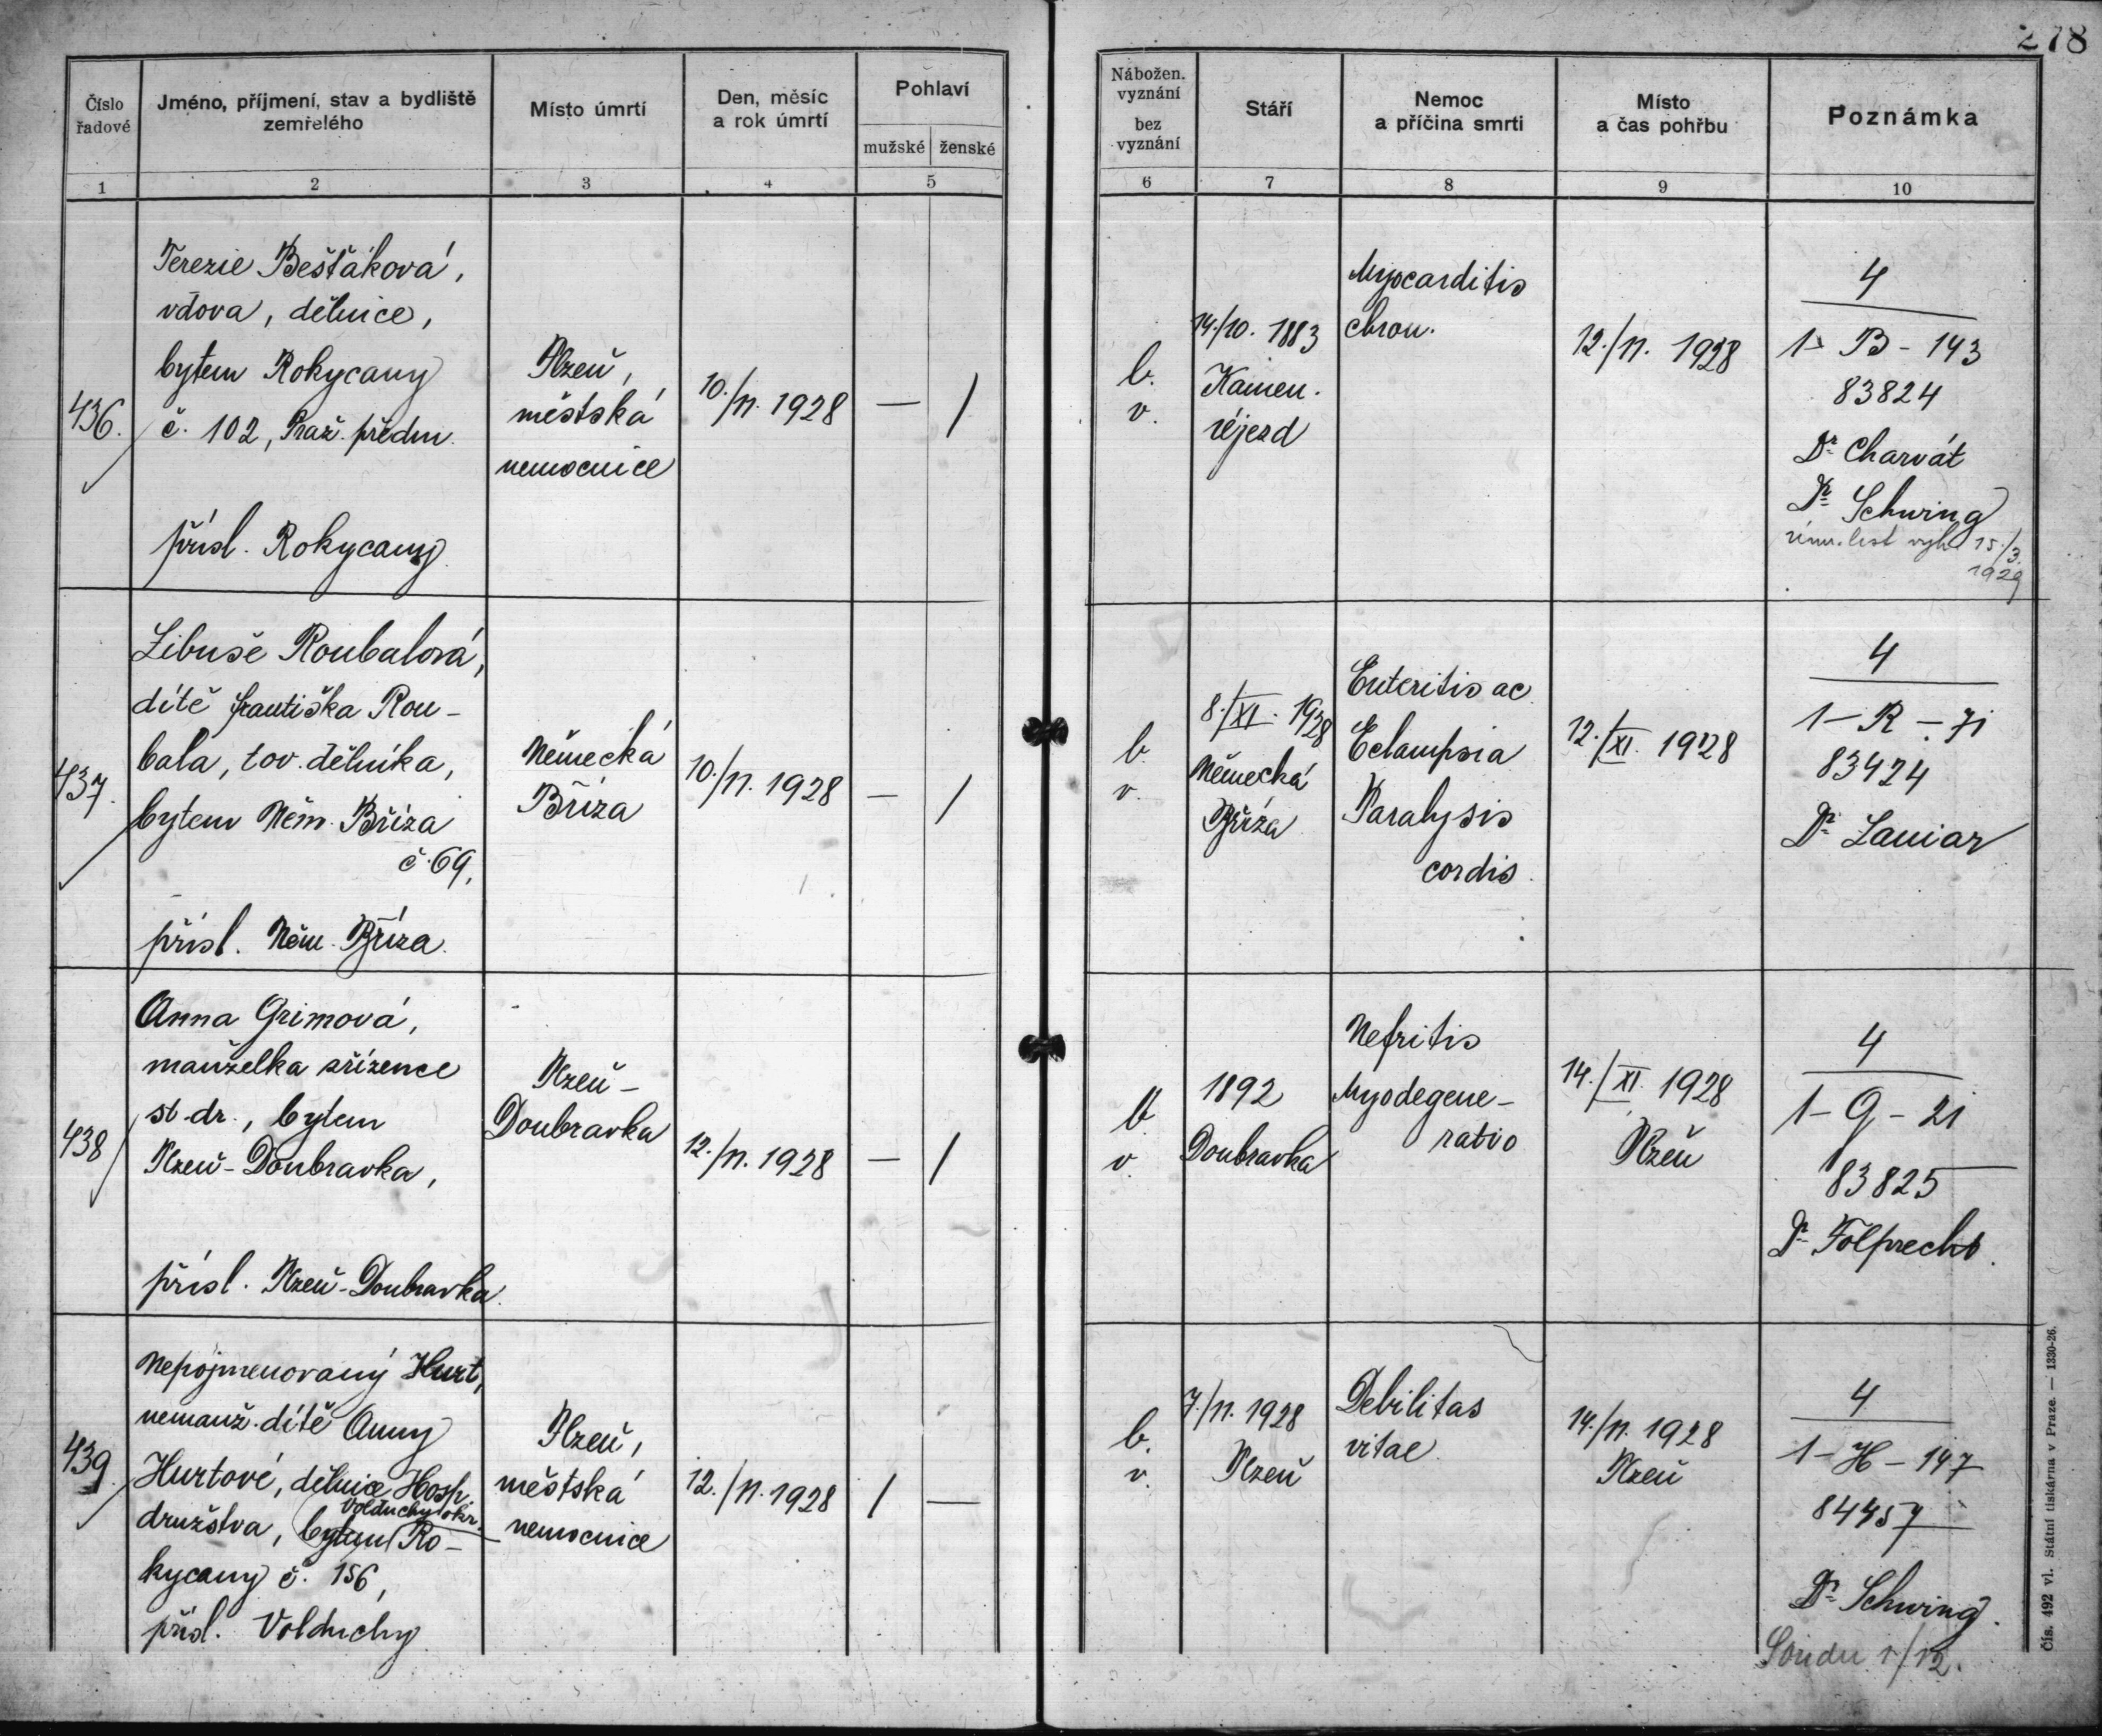 278
Číslo řadové
Jméno, příjmení, stav a bydliště zemřelého
Místo úmrtí
Den, měsíc a rok úmrtí
Pohlaví
mužské
ženské
Nábožen. vyznání
bez vyznání
Stáří
Nemoc a příčina smrti
Místo a čas pohřbu
Poznámka
1
2
3
4
5
6
7
8
9
10
436.
Terezie Bešťáková,
vdova, dělnice,
bytem Rokycany
č. 102, Praž. předm.
přísl. Rokycany
Plzeň,
městská
nemocnice
10./11. 1928
— /
b.
v.
14./10. 1883
Kamen.
Újezd
Myocarditis
chron.
12./11. 1928
4
1 - B - 143
83824
Dr Charvát
Dr Schwing
úmr. list vyh. 15./3.
1929
437.
Libuše Roubalová,
dítě Františka Rou-
bala, tov. dělníka,
bytem Něm. Bříza
č. 69,
přísl. Něm. Bříza.
Německá
Bříza
10./11. 1928
— /
b.
v.
8./XI. 1928
Německá
Bříza
Enteritis ac.
Eclampsia
Paralysis
cordis.
12./XI. 1928
4
1 - R - 71
83424
Dr Laniar
438
Anna Grimová,
manželka zřízence
st. dr., bytem
Plzeň-Doubravka,
přísl. Plzeň-Doubravka.
Plzeň-
Doubravka
12./11. 1928
— /
b.
v.
1892
Doubravka
Nefritis
Myodegene-
ratio
14./XI. 1928
Plzeň
4
1 - G - 21
83825
Dr Folprecht.
439
Nepojmenovaný Hurt,
nemanž. dítě Anny
Hurtové, dělnice Hosp.
Volduchy okr.
družstva, bytem Ro-
kycany č. 156,
přísl. Volduchy
Plzeň,
městská
nemocnice
12./11. 1928
/ —
b.
v.
7./11. 1928
Plzeň
Debilitas
vitae
14./11. 1928
Plzeň
4
1 - H - 147
84457
Dr Schwing.
Soudu 1/12.
Čís. 492 vl. Státní tiskárna v Praze. — 1330-26.